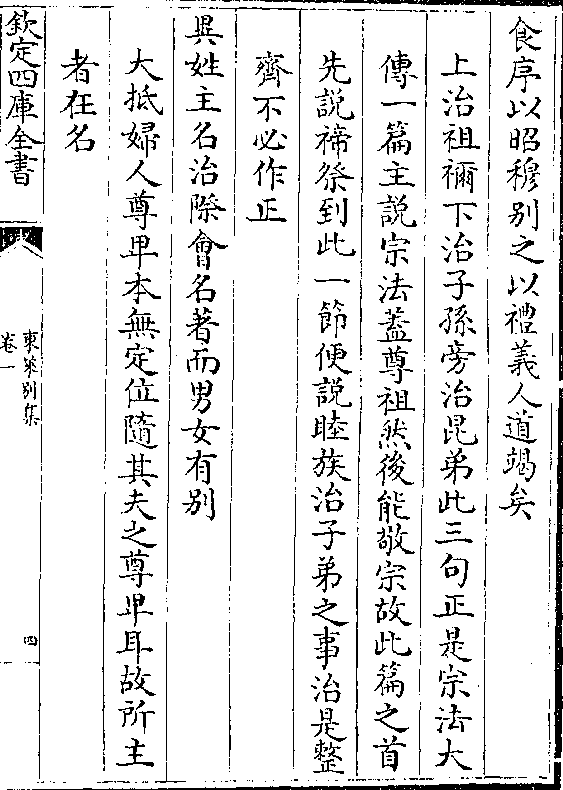 食序以昭穆别之以禮義人道竭矣
上治祖禰下治子孫旁治昆弟此三句正是宗法大
傳一篇主説宗法葢尊祖然後能敬宗故此篇之首
先説禘祭到此一節便説睦族治子弟之事治是整
齊不必作正
異姓主名治際會名著而男女有别
大抵婦人尊卑本無定位隨其夫之尊卑耳故所主
者在名
欽定四庫全書
東萊别集
卷一
四